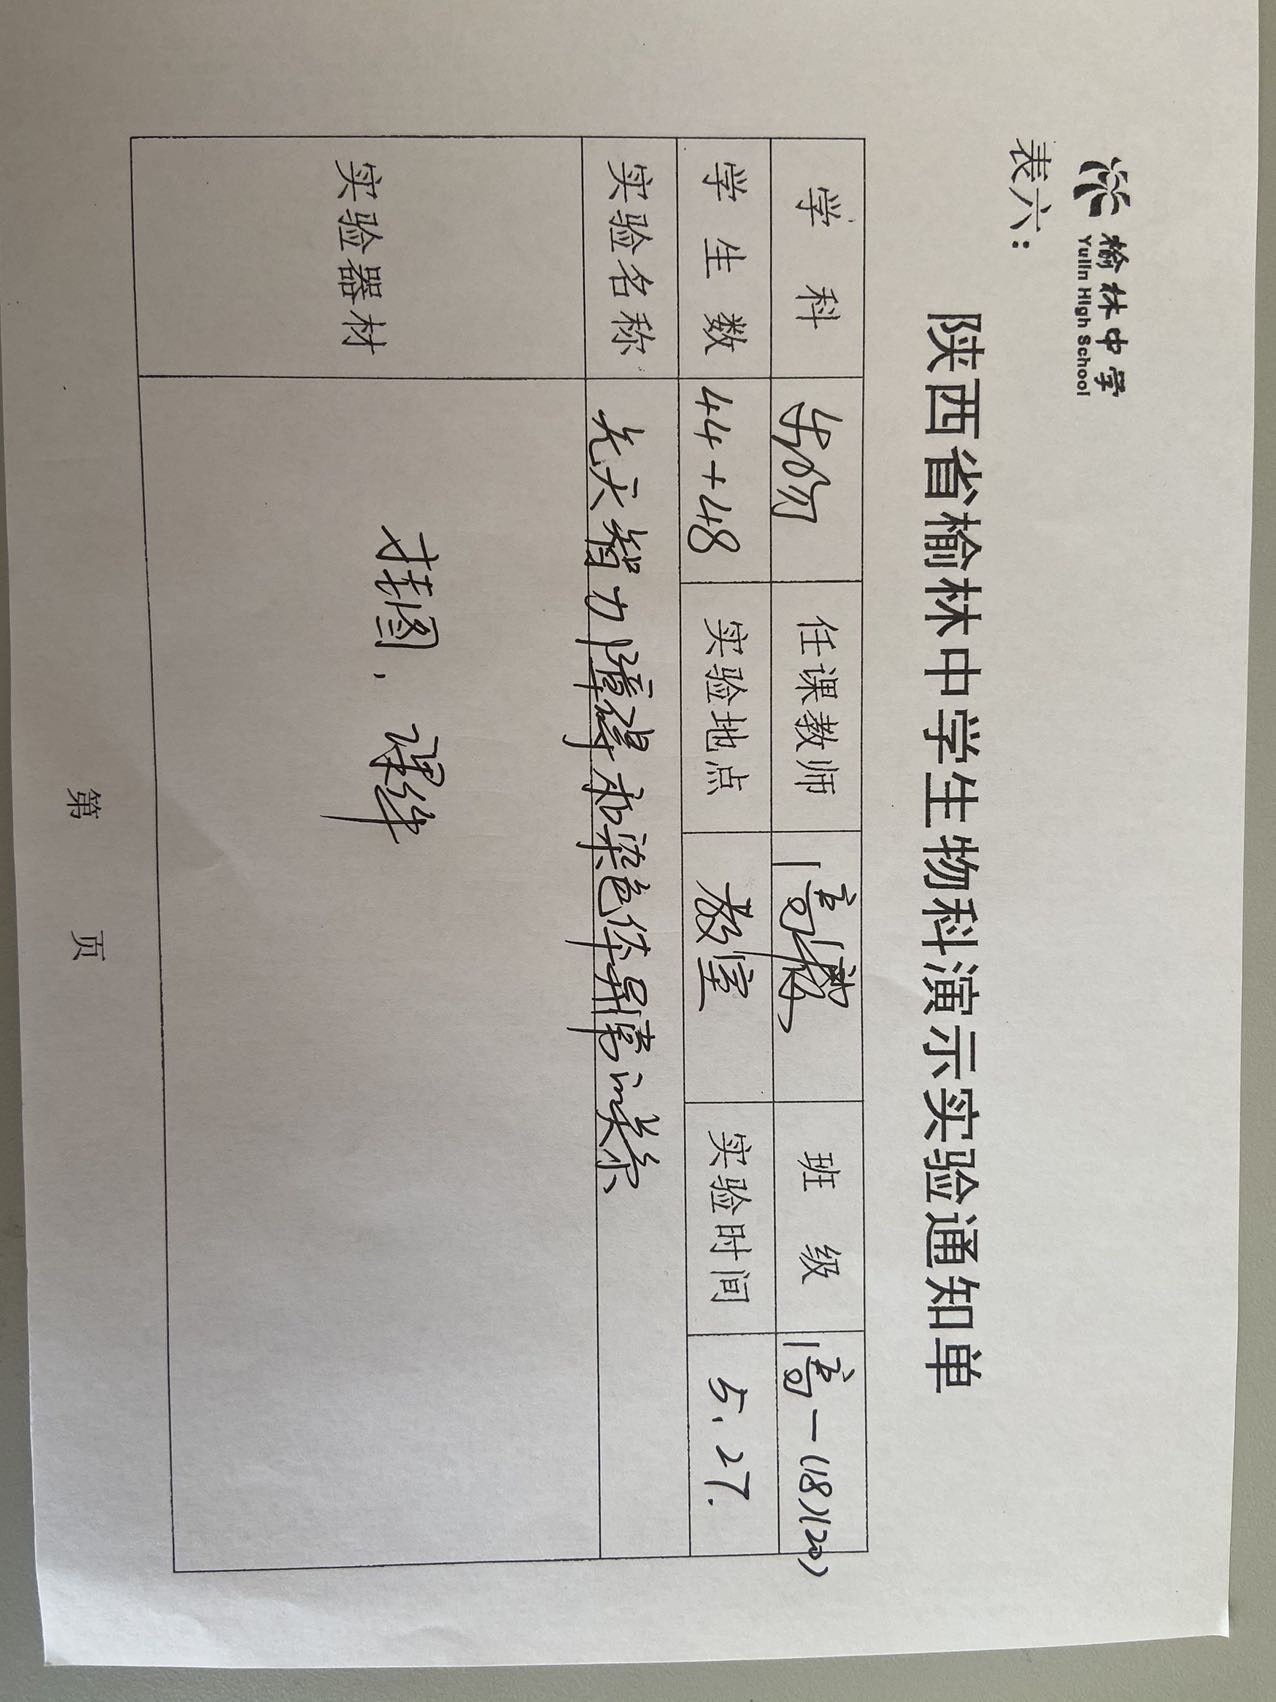 榆林中学
Yulin High School
表六：
陕西省榆林中学生物科演示实验通知单
学 科 生物 任课教师 高 班 级 高一(18)(20)
学 生 数 44+48 实验地点 教室 实验时间 5.27.
实验名称 先天智力障碍和染色体异常的关系
实验器材 挂图、课件
第 页